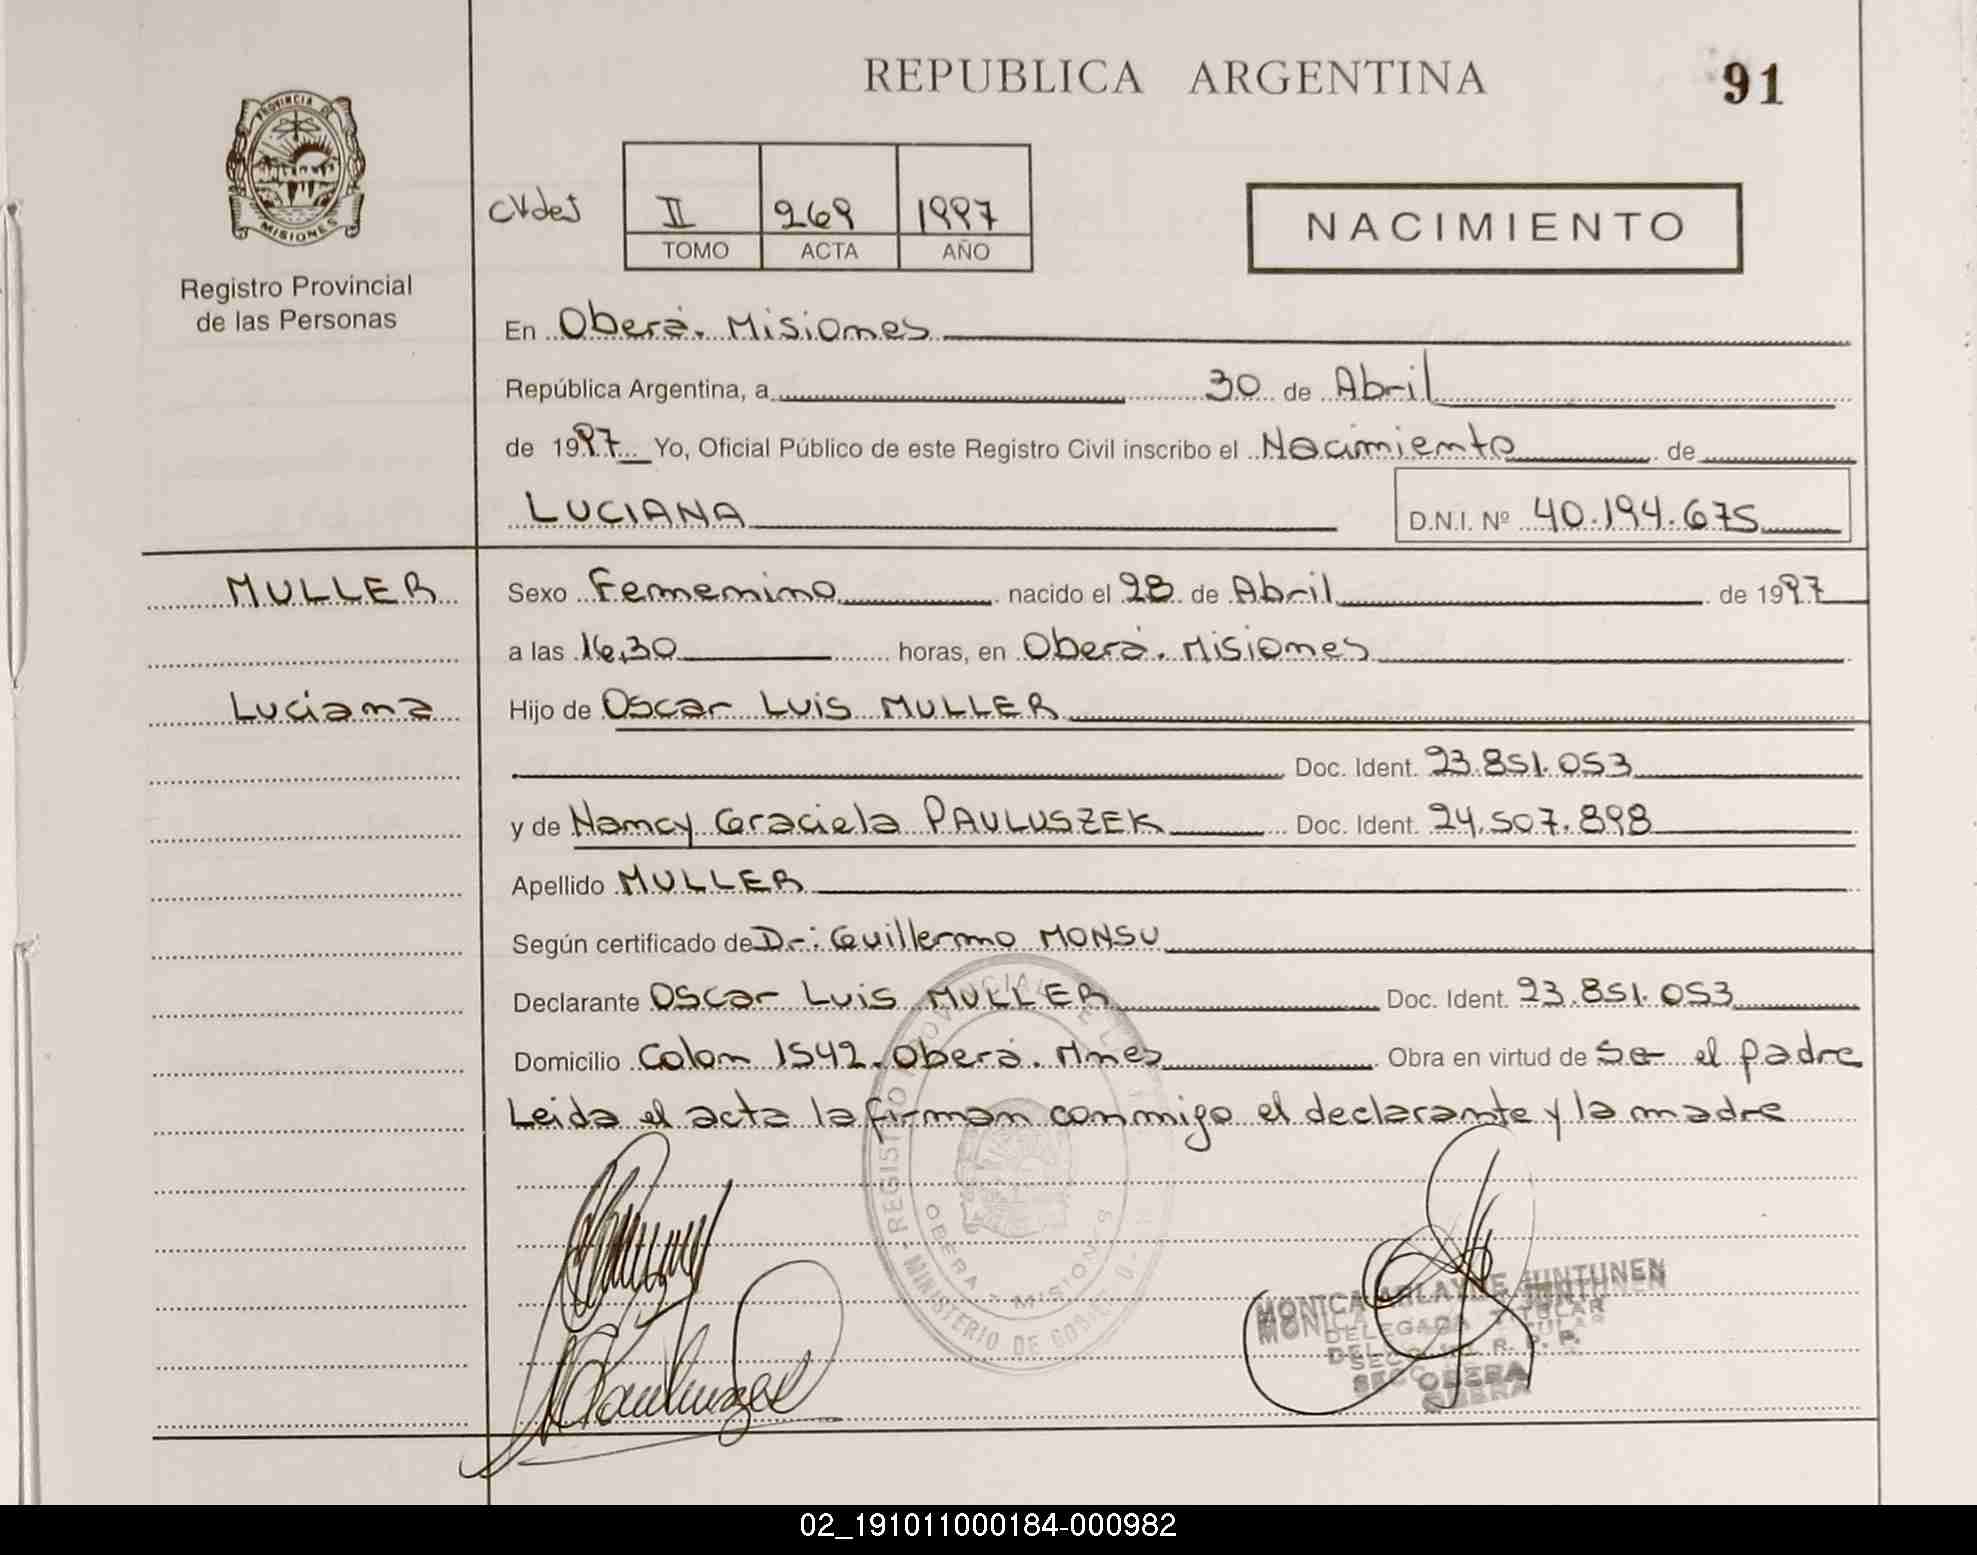 REPUBLICA ARGENTINA
91
PROVINCIA DE
MISIONES
Registro Provincial
de las Personas
II 269 1997
TOMO ACTA AÑO
NACIMIENTO
En Oberá. Misiones
República Argentina, a 30 de Abril
de 1997 Yo, Oficial Público de este Registro Civil inscribo el Nacimiento de
LUCIANA D.N.I. Nº 40.194.675
MULLER
Luciana
Sexo Femenino nacido el 28 de Abril de 1997
a las 16,30 horas, en Oberá. Misiones
Hijo de Oscar Luis MULLER
Doc. Ident. 23.851.053
y de Nancy Graciela PAULUSZEK Doc. Ident. 24.507.898
Apellido MULLER
Según certificado de Dr: Guillermo MONSU
Declarante Oscar Luis MULLER Doc. Ident. 23.851.053
Domicilio Colon 1542. Oberá. Mnes Obra en virtud de Ser el padre
Leida el acta la firman conmigo el declarante y la madre
REGISTRO PROVINCIAL DE LAS
OBERA - MISIONES
MINISTERIO DE GOBIERNO
MONICA ARLAYNE JUNTUNEN
DELEGADA TITULAR
R. P. P.
OBERA
02_191011000184-000982